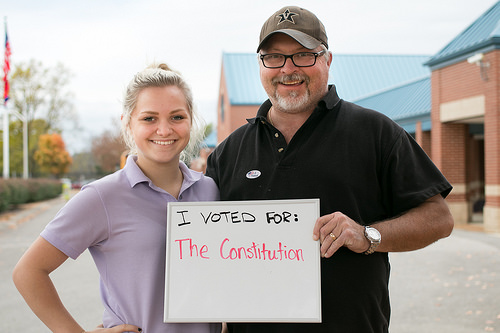 I VOTED FOR:
The Constitution